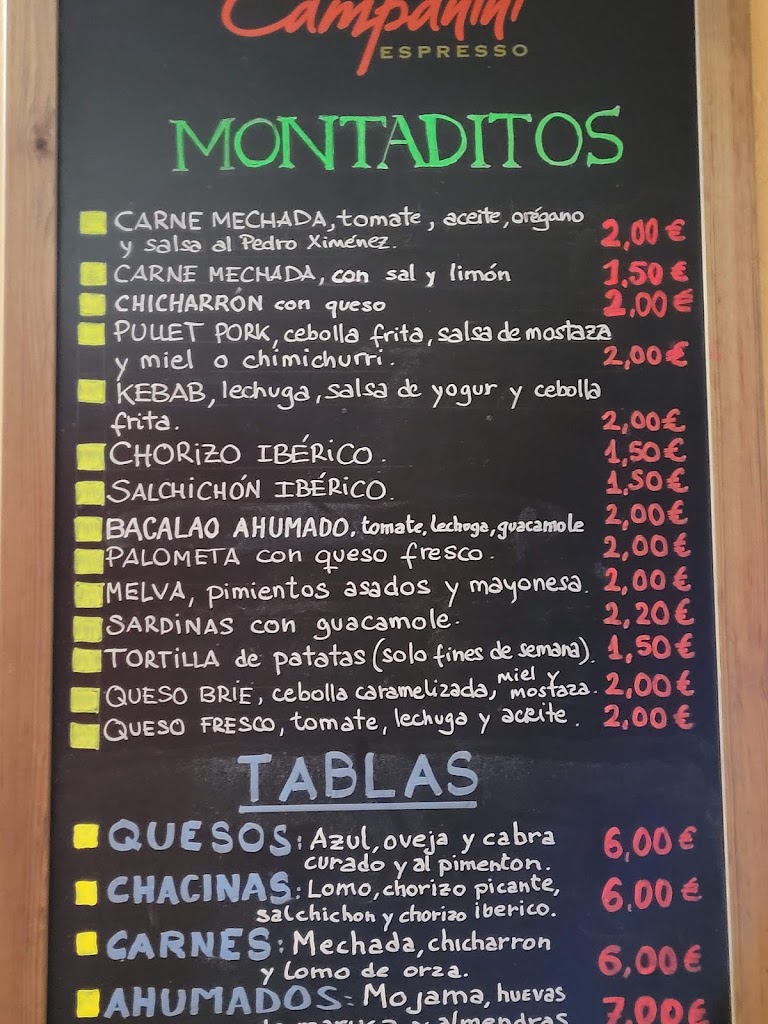 Campanini
ESPRESSO
MONTADITOS
CARNE MECHADA, tomate, aceite, orégano
y salsa al Pedro Ximénez. 2,00 €
CARNE MECHADA, con sal y limón 1,50 €
CHICHARRÓN con queso 2,00 €
PULLET PORK, cebolla frita, salsa de mostaza
y miel o chimichurri. 2,00 €
KEBAB, lechuga, salsa de yogur y cebolla
frita. 2,00 €
CHORIZO IBÉRICO. 1,50 €
SALCHICHÓN IBÉRICO. 1,50 €
BACALAO AHUMADO, tomate, lechuga, guacamole 2,00 €
PALOMETA con queso fresco. 2,00 €
MELVA, pimientos asados y mayonesa. 2,00 €
SARDINAS con guacamole. 2,20 €
TORTILLA de patatas (solo fines de semana). 1,50 €
QUESO BRIE, cebolla caramelizada, miel y mostaza. 2,00 €
QUESO FRESCO, tomate, lechuga y aceite. 2,00 €
TABLAS
QUESOS: Azul, oveja y cabra
curado y al pimenton. 6,00 €
CHACINAS: Lomo, chorizo picante,
salchichon y chorizo iberico. 6,00 €
CARNES: Mechada, chicharron
y lomo de orza. 6,00 €
AHUMADOS: Mojama, huevas
de maruca y almendras 7,00 €